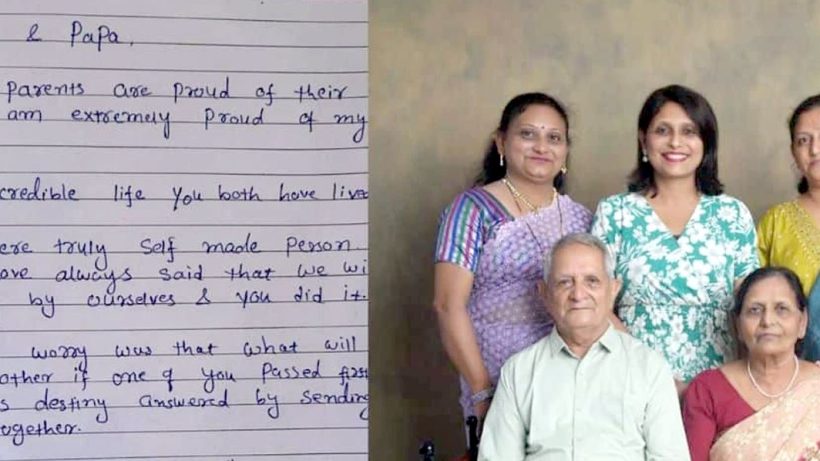 & Papa,
parents are proud of their
am extremely proud of my
credible life you both have lived
ere truly self made person.
ave always said that we wi
by ourselves & you did it.
worry was that what will
other if one of you passed first
s destiny answered by sending
ogether.